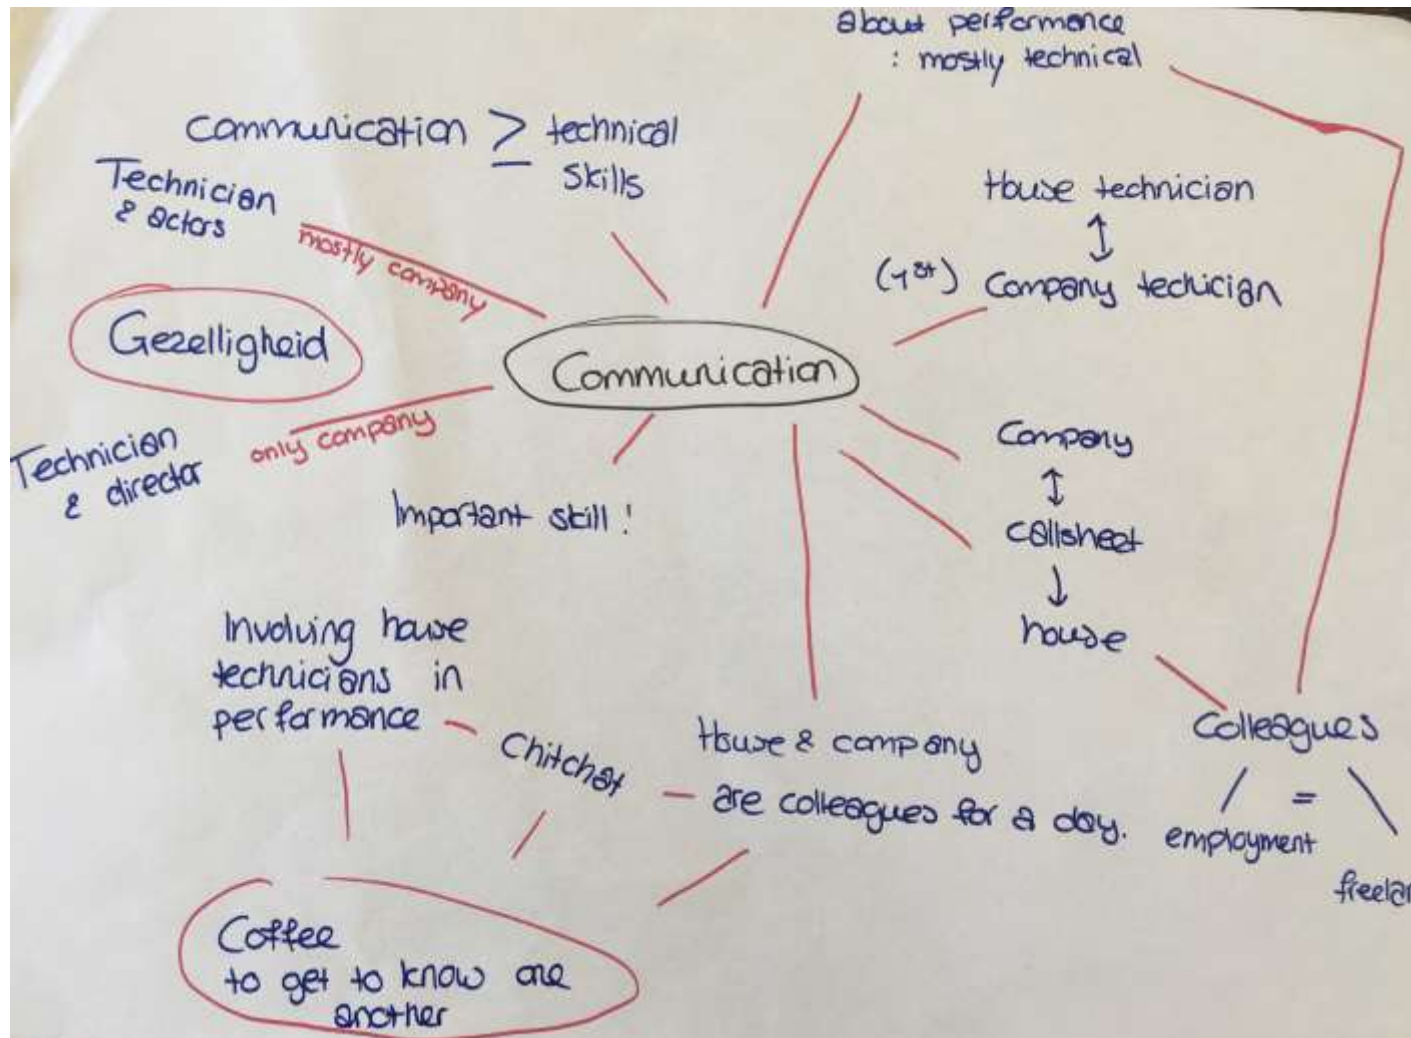 about performance
: mostly technical
communication ≥ technical
skills
Technician
& actors
mostly company
House technician
↕
(1st) Company techician
Gezelligheid
Communication
only company
Technician
& director
Important skill!
Company
↕
callsheet
↓
house
Involving house
technicians in
performance
Chitchat
House & company
are colleagues for a day.
Colleagues
=
employment
freelan
Coffee
to get to know one
another